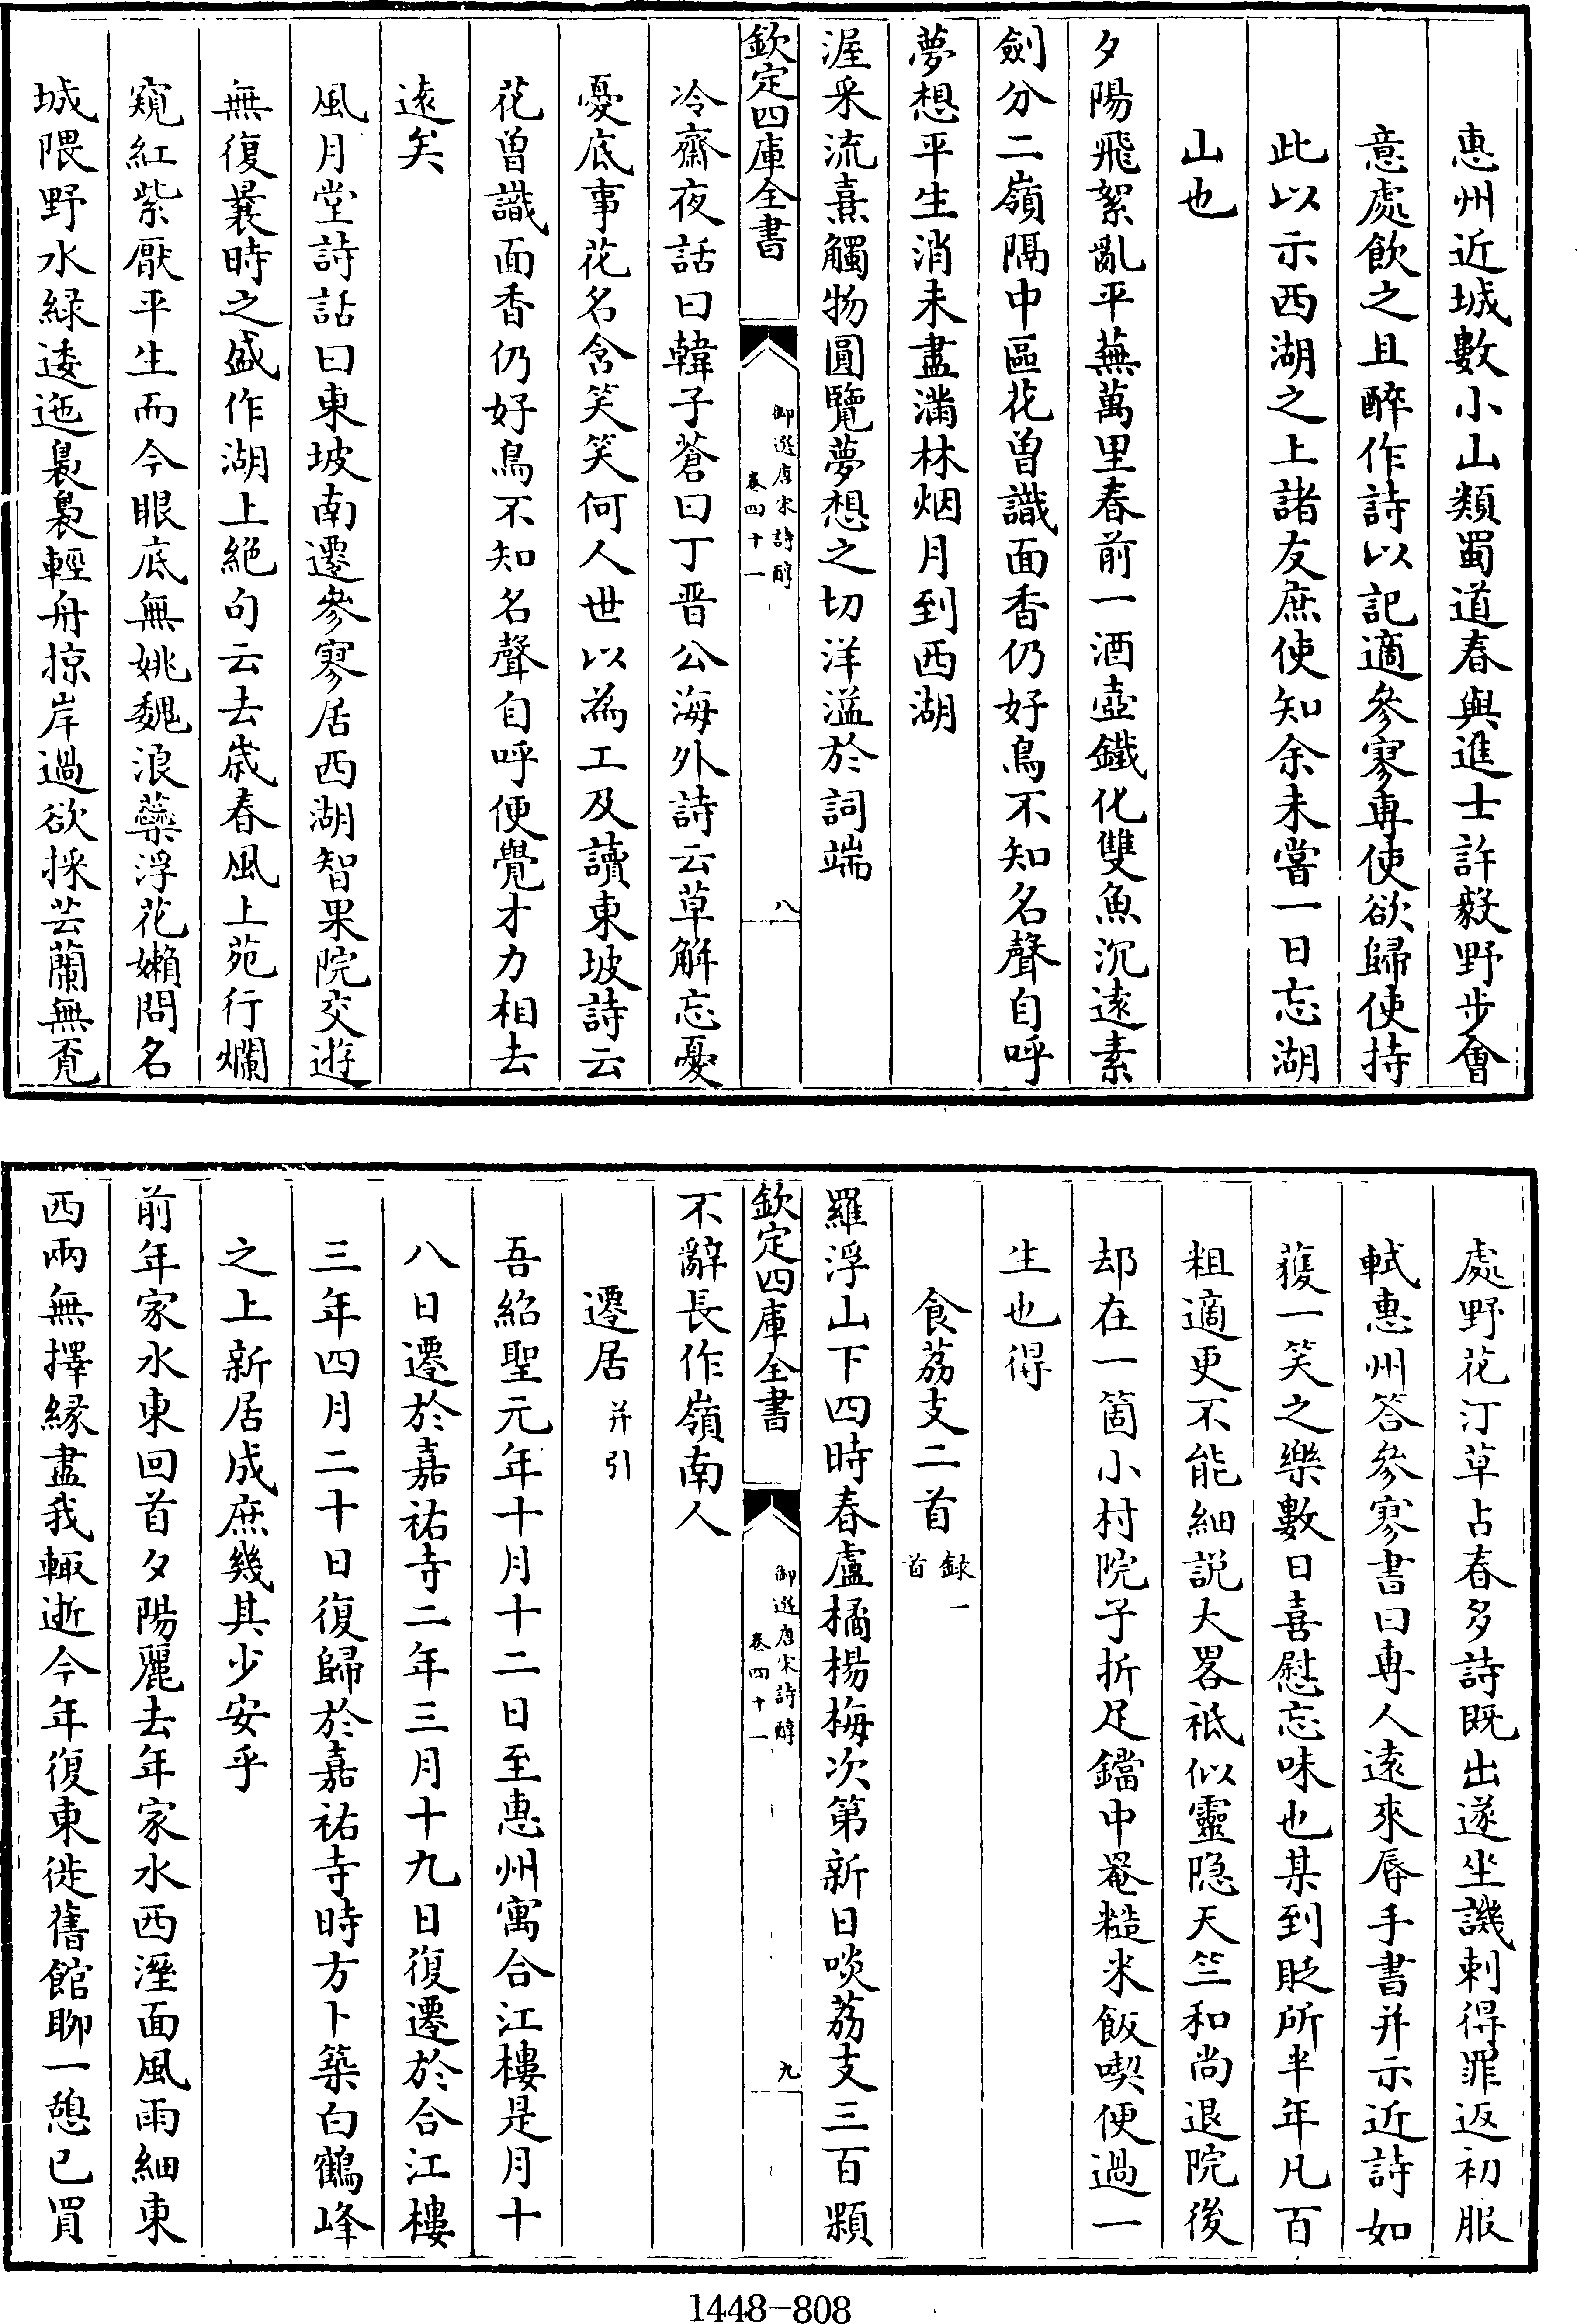 惠州近城數小山類蜀道春與進士許毅野步會
意處飲之且醉作詩以記適參寥專使欲歸使持
此以示西湖之上諸友庶使知余未嘗一日忘湖
山也
夕陽飛絮亂平蕪萬里春前一酒壺鐵化雙魚沉遠素
劍分二嶺隔中區花曾識面香仍好鳥不知名聲自呼
夢想平生消未盡滿林烟月到西湖
渥采流熹觸物圓覽夢想之切洋溢於詞端
欽定四庫全書
御選唐宋詩醇
卷四十一
八
冷齋夜話曰韓子蒼曰丁晋公海外詩云草解忘憂
憂底事花名含笑笑何人世以為工及讀東坡詩云
花曾識面香仍好鳥不知名聲自呼便覺才力相去
遠矣
風月堂詩話曰東坡南遷參寥居西湖智果院交遊
無復曩時之盛作湖上絕句云去歲春風上苑行爛
窺紅紫厭平生而今眼底無姚魏浪蘂浮花嬾問名
城隈野水緑逶迤裊裊輕舟掠岸過欲採芸蘭無覔
處野花汀草占春多詩既出遂坐譏刺得罪返初服
軾惠州答參寥書曰専人遠來辱手書并示近詩如
獲一笑之樂數日喜慰忘味也某到貶所半年凡百
粗適更不能細説大畧祗似靈隐天竺和尚退院後
却在一箇小村院子折足鐺中罨糙米飯喫便過一
生也得
食荔支二首 録一首
羅浮山下四時春盧橘楊梅次第新日啖荔支三百顆
欽定四庫全書
御選唐宋詩醇
卷四十一
九
不辭長作嶺南人
遷居 并引
吾紹聖元年十月十二日至惠州寓合江樓是月十
八日遷於嘉祐寺二年三月十九日復遷於合江樓
三年四月二十日復歸於嘉祐寺時方卜築白鶴峰
之上新居成庶幾其少安乎
前年家水東回首夕陽麗去年家水西溼面風雨細東
西兩無擇緣盡我輙逝今年復東徙舊館聊一憩已買
1448-808